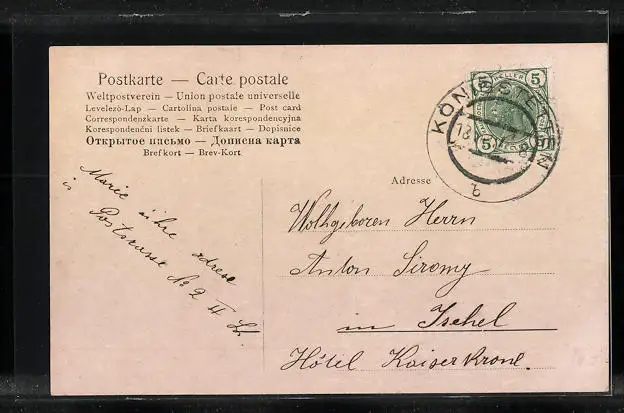 Postkarte — Carte postale
Weltpostverein — Union postale universelle
Levelező-Lap — Cartolina postale — Post card
Correspondenzkarte — Karta korespondencyjna
Korespondenční listek — Briefkaart — Dopisnice
Открытое письмо — Дописна карта
Brefkort — Brev-Kort
5 HELLER 5
5 5
KÖNIGSTETTEN
18
b
Adresse
Wolhgeboren Herrn
Anton Siromy
in Ischel
Hôtel Kaiserkrone.
Marie
adresse
Poststrasse No 2